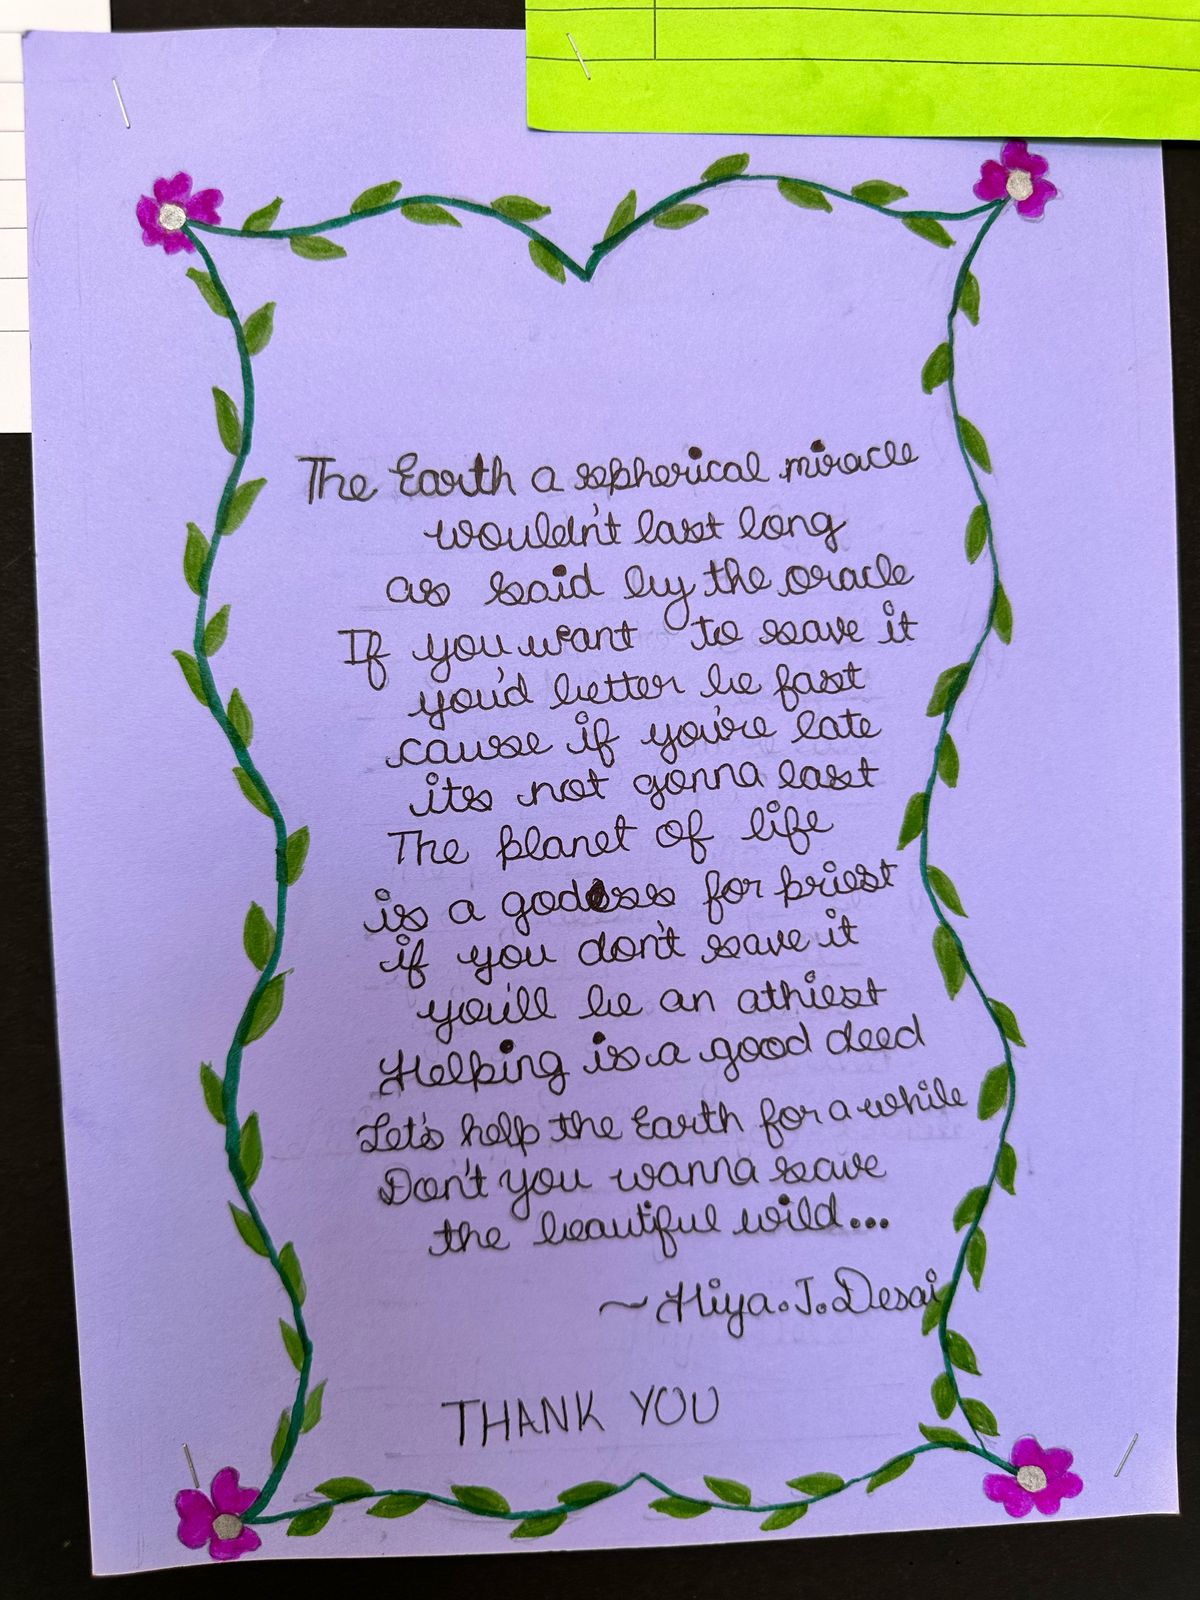 The Earth a spherical miracle
wouldn't last long
as said by the oracle
If you want to save it
you'd better be fast
cause if you're late
its not gonna last
The planet of life
is a godess for priest
if you don't save it
you'll be an athiest
Helping is a good deed
Let's help the Earth for a while
Don't you wanna save
the beautiful wild...
~Hiya.J.Desai
THANK YOU